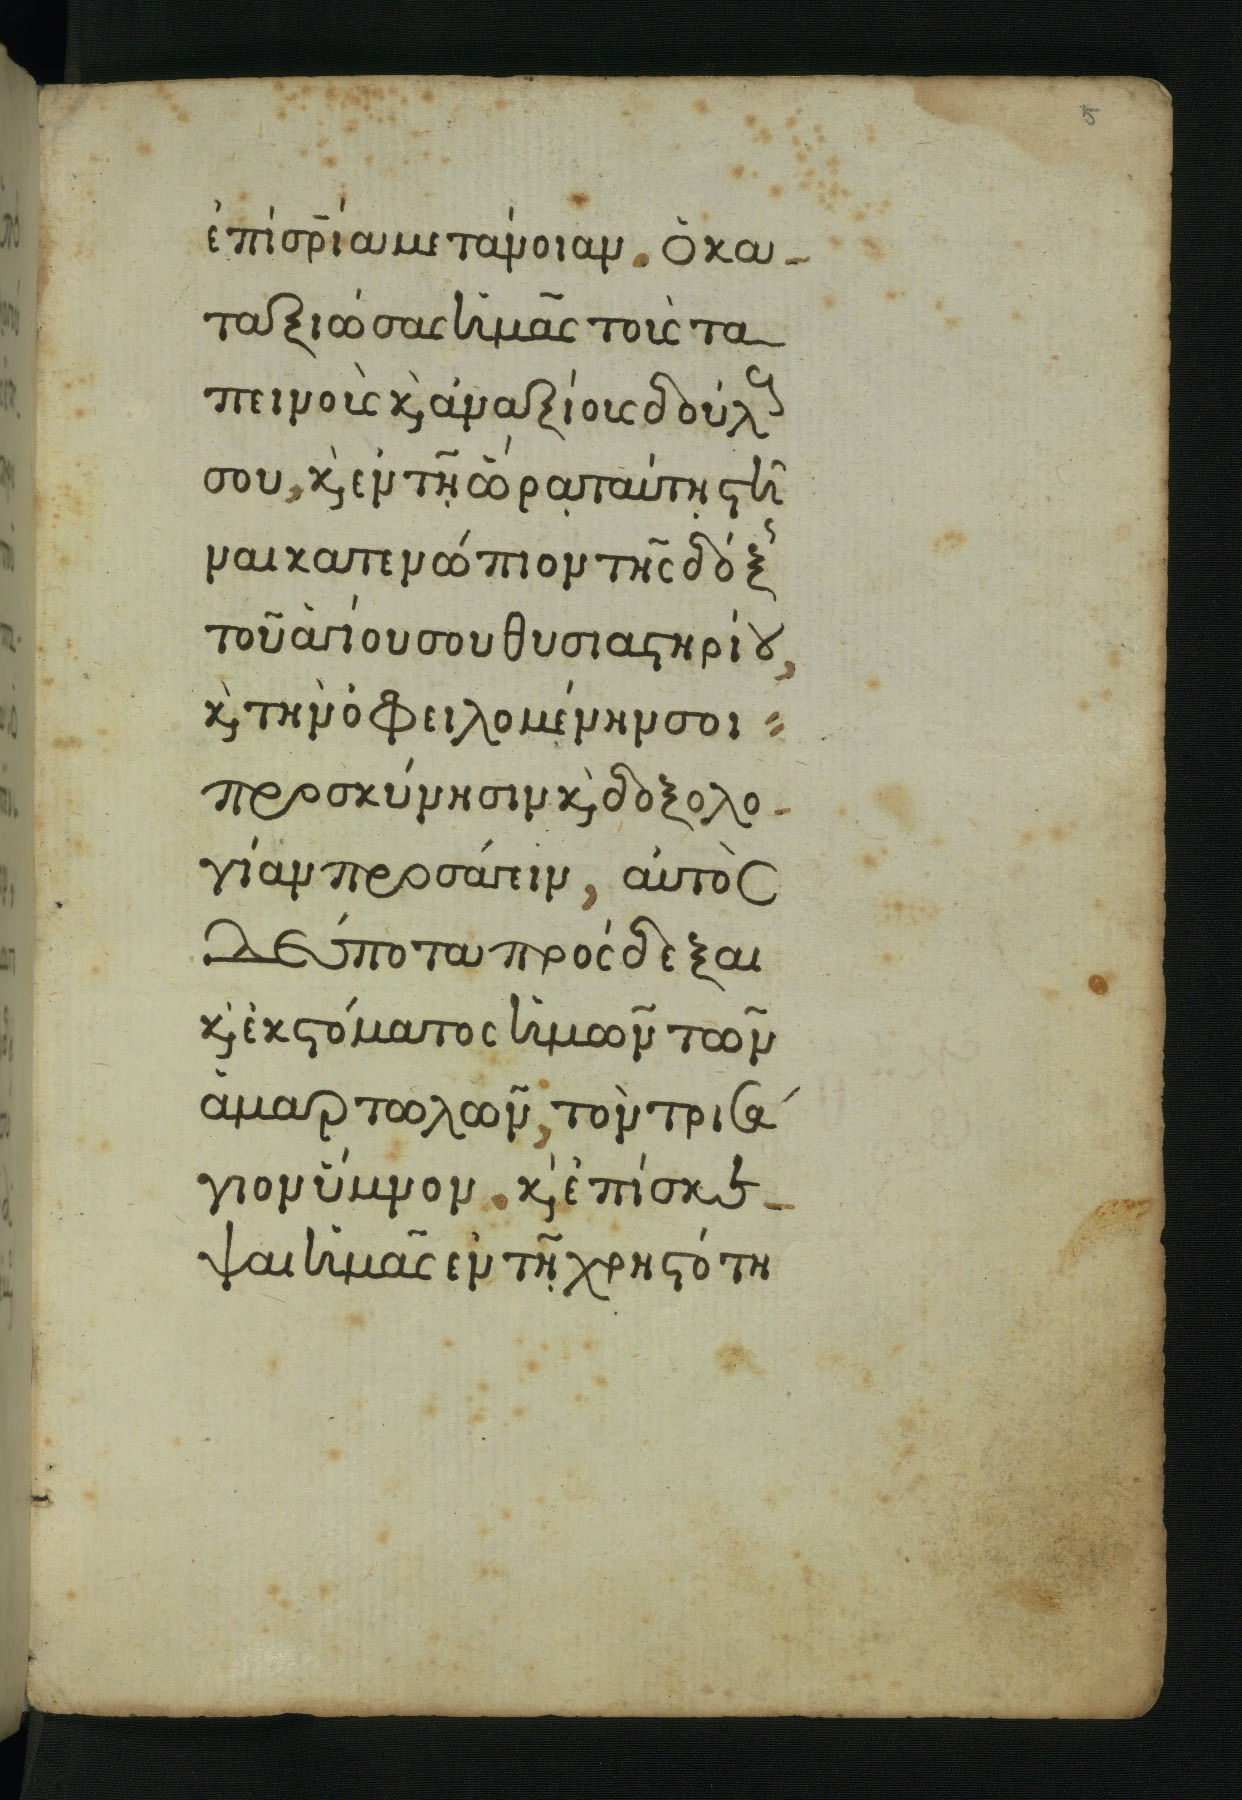 5
ἐπὶ σρ̅ία μετάνοιαν. ὁ κα-
ταξιώσας ἡμᾶς τοὺς τα
πεινοὺς κ̀ ἀναξίους δούλς
σου, κ̀ ἐν τῇ ὥρᾳ ταύτῃ στῆ
ναι κατενώπιον τῆς δόξς
τοῦ ἁγίου σου θυσιαστηρίου,
κ̀ τὴν ὀφειλομένην σοι
προσκύνησιν κ̀ δοξολο-
γίαν προσάγειν, αὐτὸς
Δέσποτα πρόσδεξαι
κ̀ ἐκ στόματος ἡμῶν τῶν
ἁμαρτωλῶν, τὸν τρισά
γιον ὕμνον. κ̀ ἐπίσκε-
ψαι ἡμᾶς ἐν τῇ χρηστότη